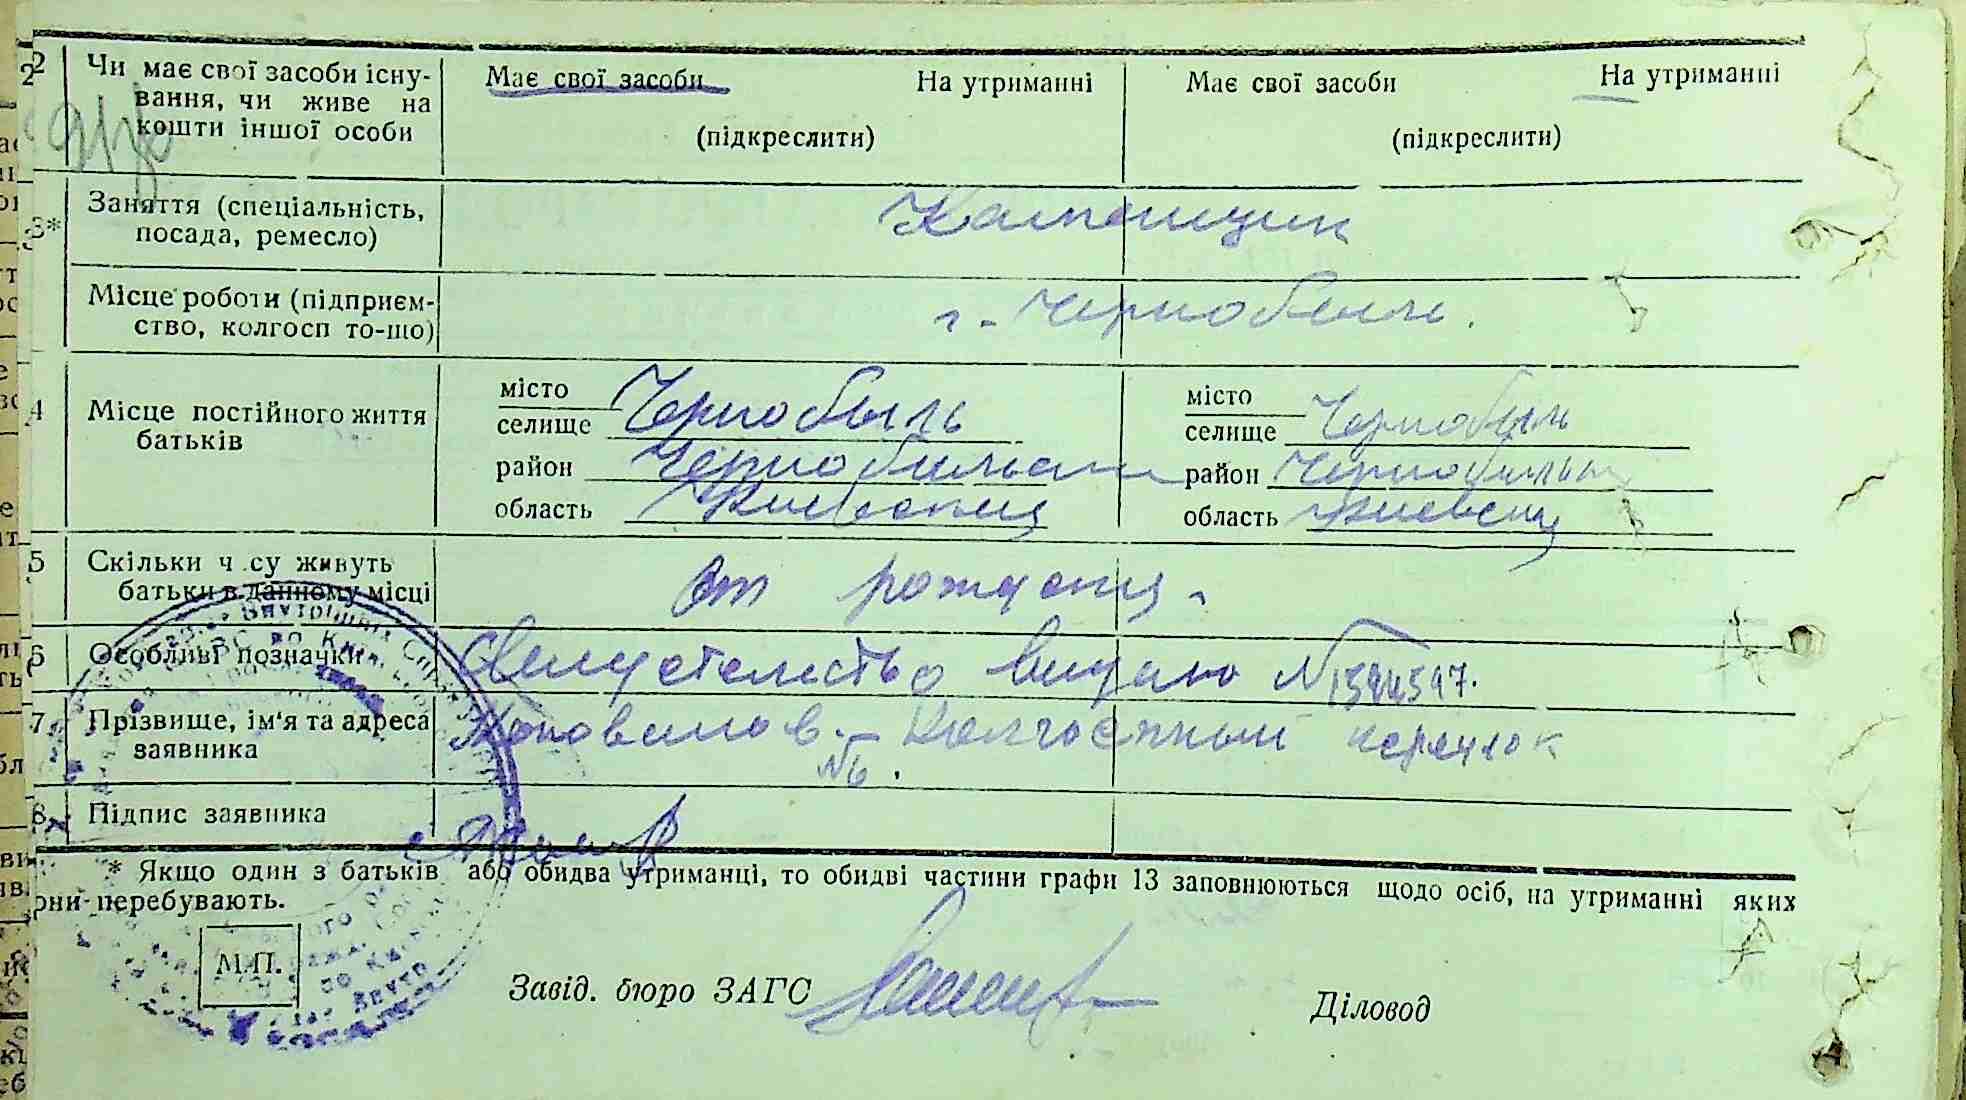 2 Чи має свої засоби існу- Має свої засоби На утриманні Має свої засоби На утриманні
вання, чи живе на
кошти іншої особи (підкреслити) (підкреслити)
3* Заняття (спеціальність,
посада, ремесло)
Місце роботи (підприєм- г. Чернобыль.
ство, колгосп то-що)
місто місто
4 Місце постійного життя Чернобыль Чернобыль
батьків селище селище
район Чернобильск район Чернобильск
область Киевская область Киевская
5 Скільки ч су живуть От рождения
батьки в данному місці
6 Особливі позначки Свидетельство видано № 1344347.
7. Прізвище, ім'я та адреса Коновалов. Колгоспный переулок
заявника №6.
8. Підпис заявника
* Якщо один з батьків або обидва утриманці, то обидві частини графи 13 заповнюються щодо осіб, на утриманні яких
они перебувають.
М.П.
Завід. бюро ЗАГС Діловод